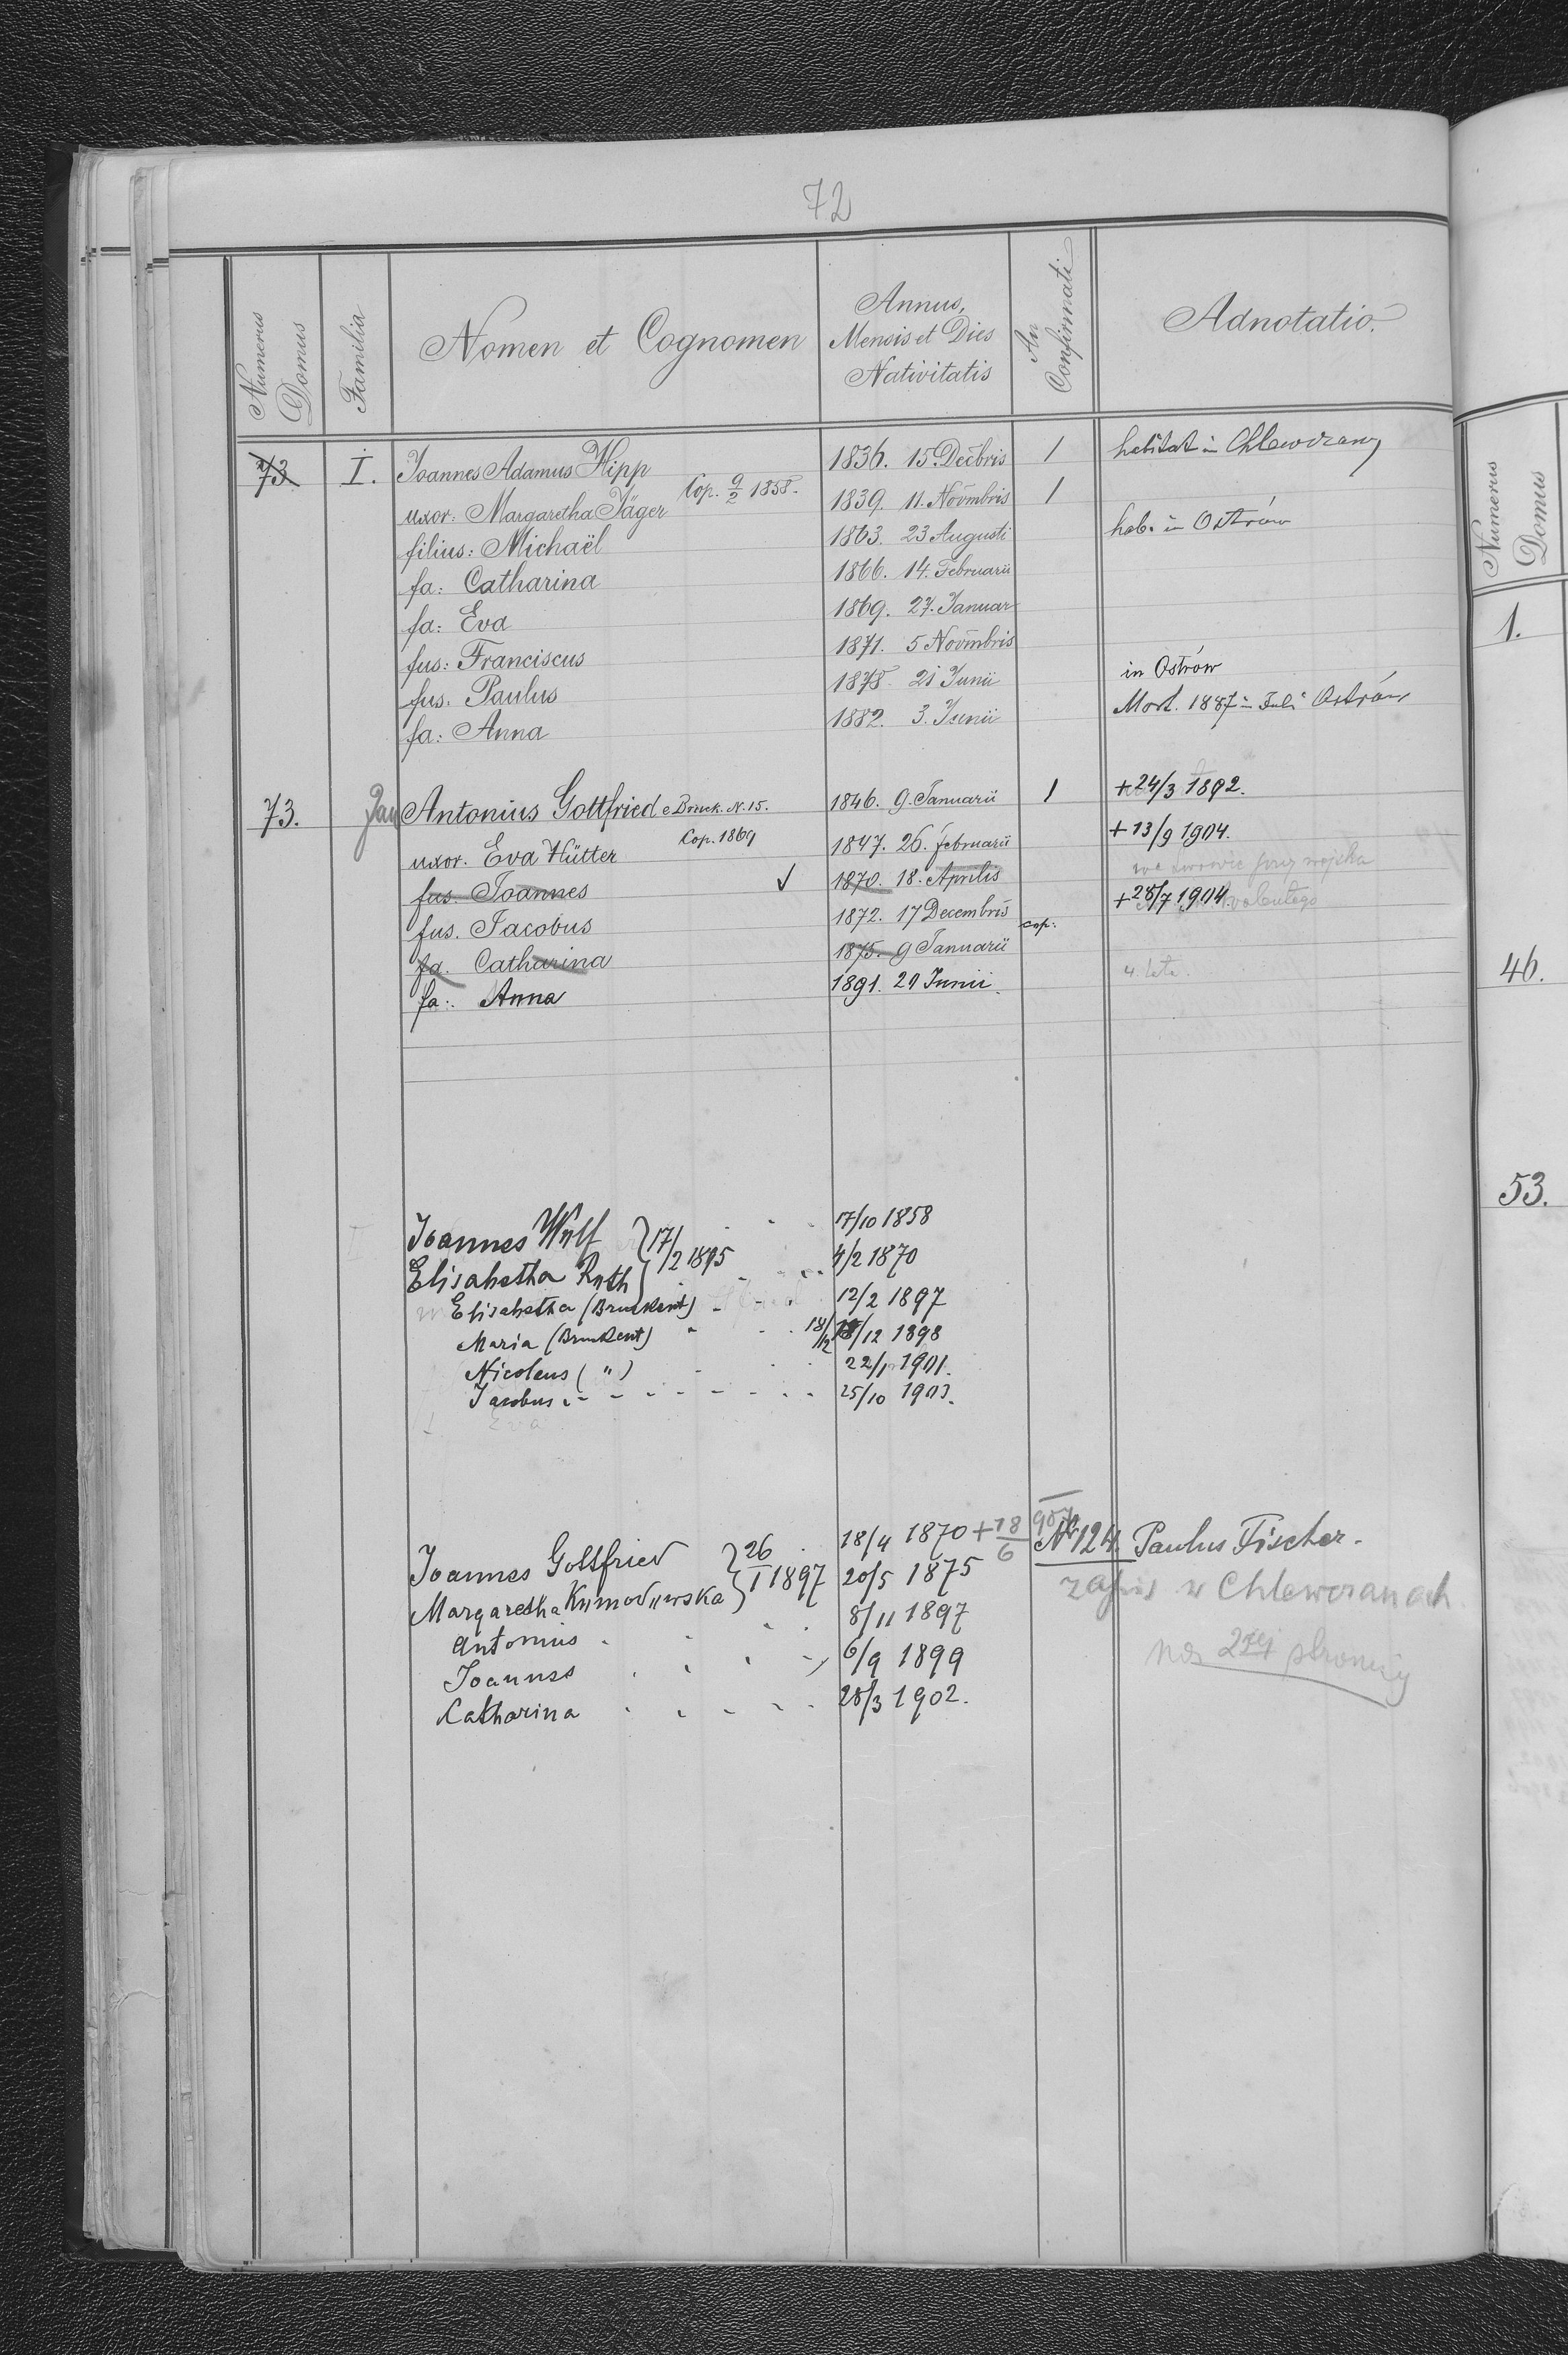 72
Numerus Domus
Familia
Nomen et Cognomen
Annus, Mensis et Dies Nativitatis
An Confirmati
Adnotatio.
73 I. Joannes Adamus Hipp 1836. 15. Decbris / habitat in Chlewczany
uxor: Margaretha Jäger Cop. 9/2 1858. 1839. 11. Novmbris /
filius: Michaël 1863. 23 Augusti hab. in Ostrów
fa: Catharina 1866. 14. Februarii
fa: Eva 1869. 27. Januar
fus: Franciscus 1871. 5 Novmbris
fus: Paulus 1878 21 Junii in Ostrów
fa: Anna 1882. 3. Junii Mort. 1887 in Juli Ostrów
73. Jan Antonius Gottfried e Bruck. N. 15. 1846. 9. Januarii / +24/3 1892.
uxor. Eva Hütter Cop. 1869 1847. 26. februarii +13/9 1904.
fus Joannes √ 1870. 18. Aprilis
fus. Jacobus 1872. 17 Decembris +28/7 1904.
fa. Catharina 1875. 9 Januarii cop:
fa: Anna 1891. 21 Junii 4. lata.
Joannes Wulf } 17/2 1895 17/10 1858
Elisabetha Ruth 4/2 1870
Elisabetha (Bruckent) 12/2 1897
Maria (Bruckent) 18/12 1898
Nicolaus ( " ) 22/1 1901.
Jacobus 25/10 1903.
Eva
Joannes Gottfried } 26/1 1897 18/4 1870 + 18/6 907 № 124. Paulus Fischer.
Margaretha 20/5 1875 w Chlewczanach
Antonius 8/11 1897
Joannes 6/9 1899 na 2giej stronicy
Catharina 28/3 1902.
Numerus Domus
1.
46.
53.